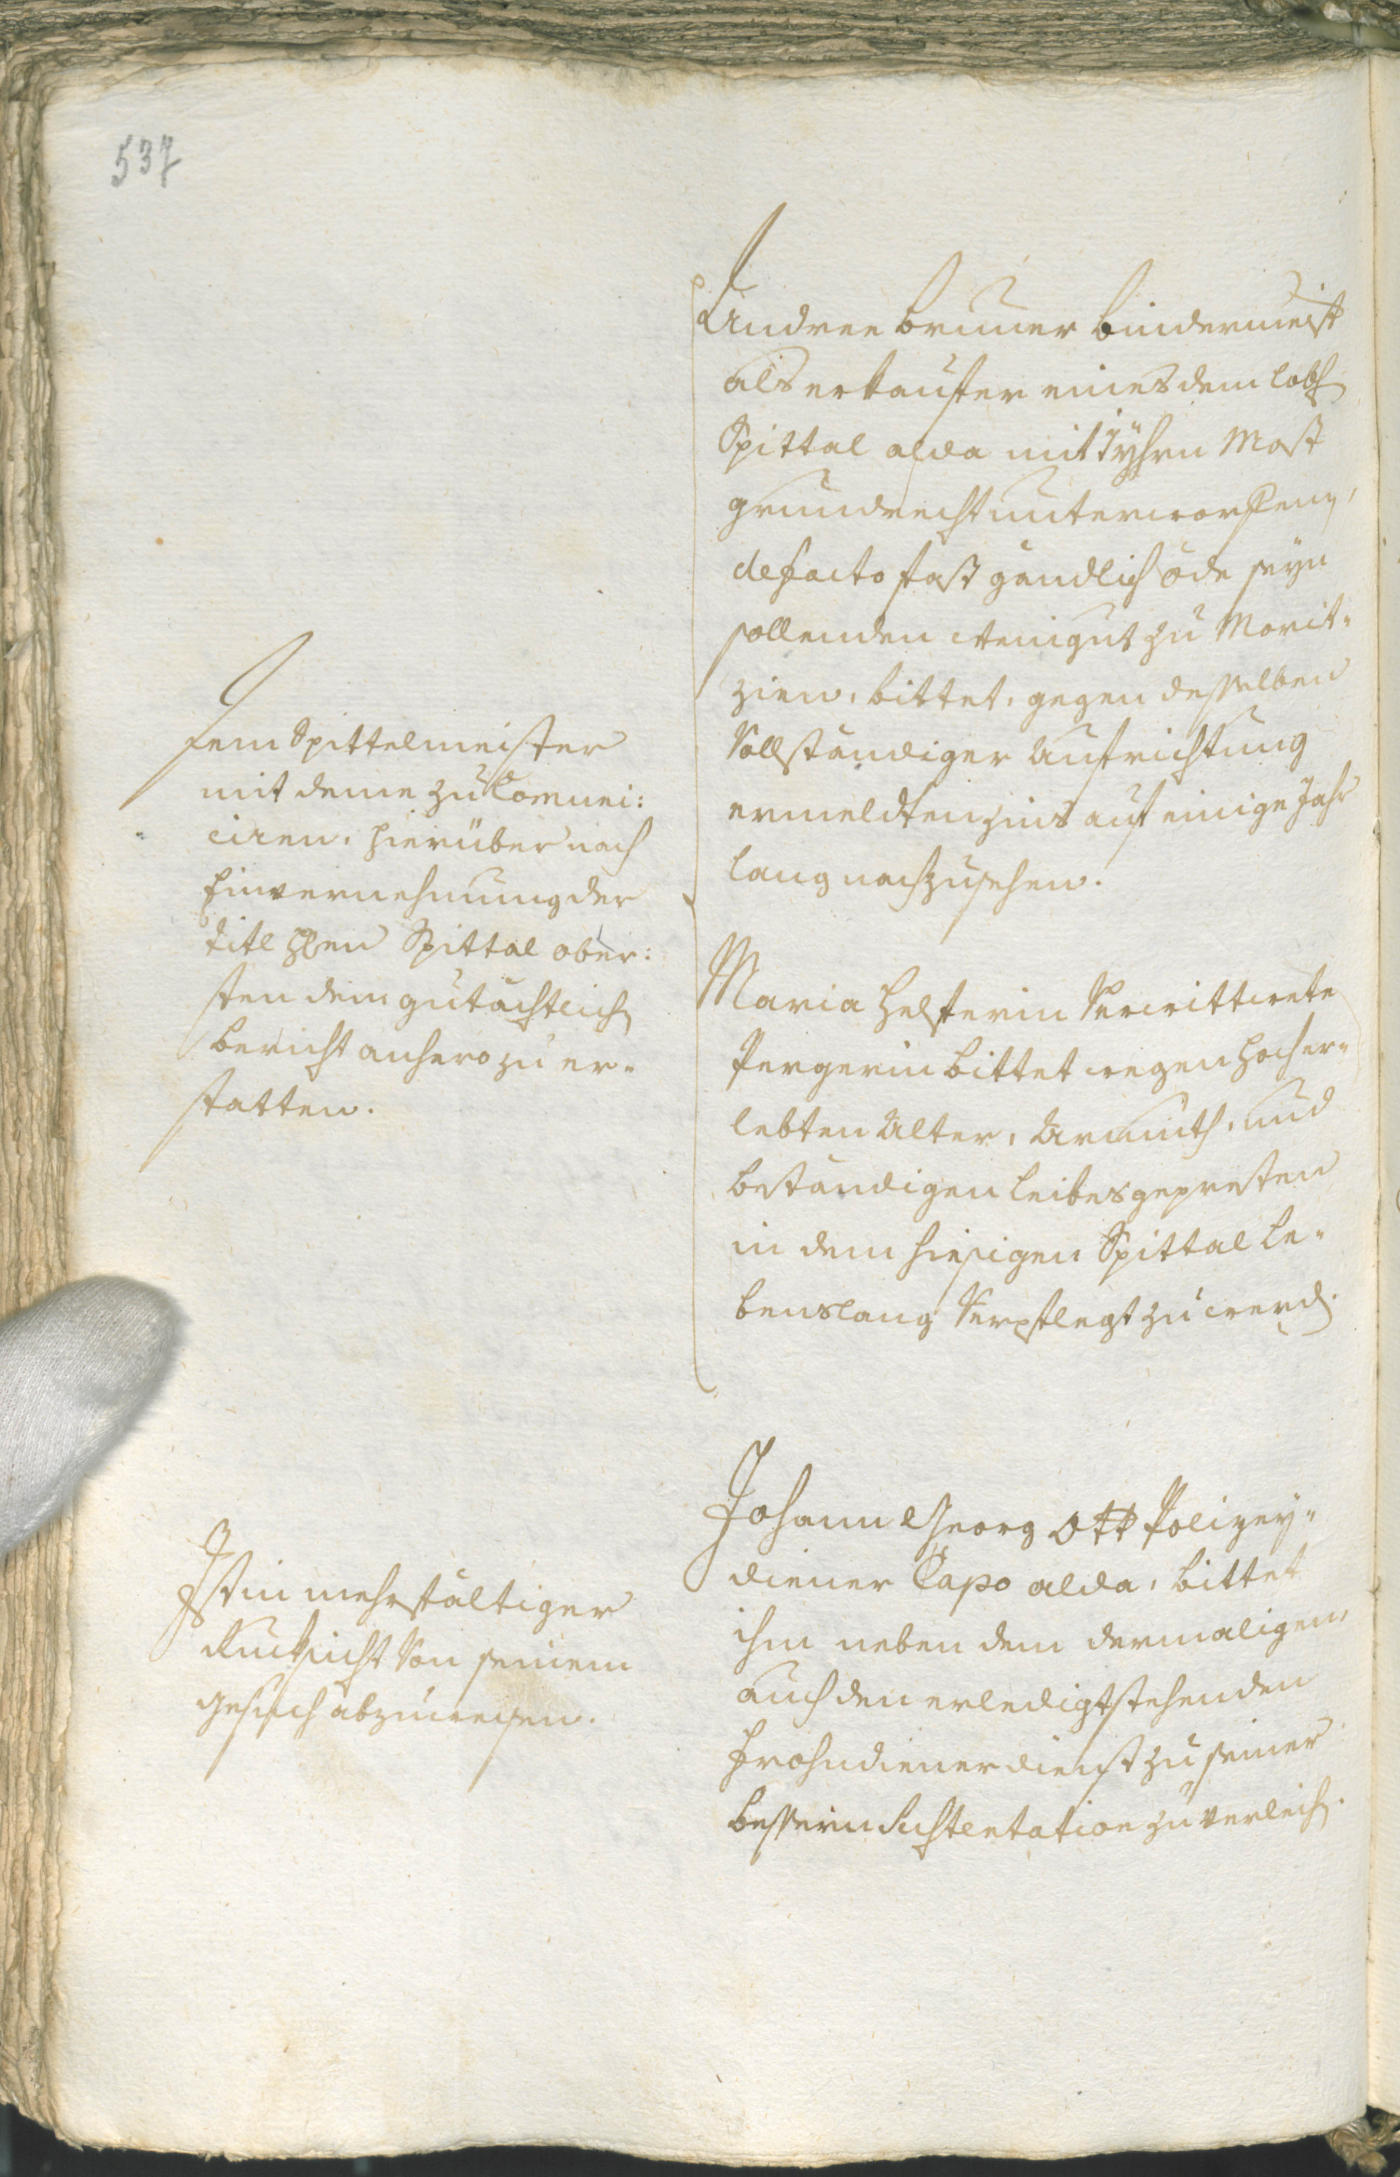 537
Andree Brunner Bindermeist
als erkaufter eines dem lobl
Spittal alda mit Yhrn Most
grundrecht unterworfen,
de facto fast gändlich öde seyn
sollenden Weingut zu Morit-
zien, bittet, gegen desselben
Vollständiger Aufrichtung
ermeldten Zins auf einige Jahr
lang nachzusehen.
Dem Spittelmeister
mit deme zu Comuni:
ciren, hierüber nach
Einvernehmung der
titl Hhen Spittal ober:
sten dem gutächtlich
Bericht anhero zu er-
statten.
Maria Helfferin Verwittwete
Pergerin bittet wegen hocher-
lebten Alter, Armuth, und
beständigen Leibesgepresten
in dem hiesigen Spittal Le-
benslang Verpflegt zu werd.
Johann Georg Ott Polizey-
diener Capo alda, bittet
ihm neben dem dermaligen
auch den erledigt stehenden
Frohndienerdienst zu seiner
bessern Sustentation zu verleich.
Ist in mehrfältiger
Rucksicht Von seinem
Gesuch abzuweisen.